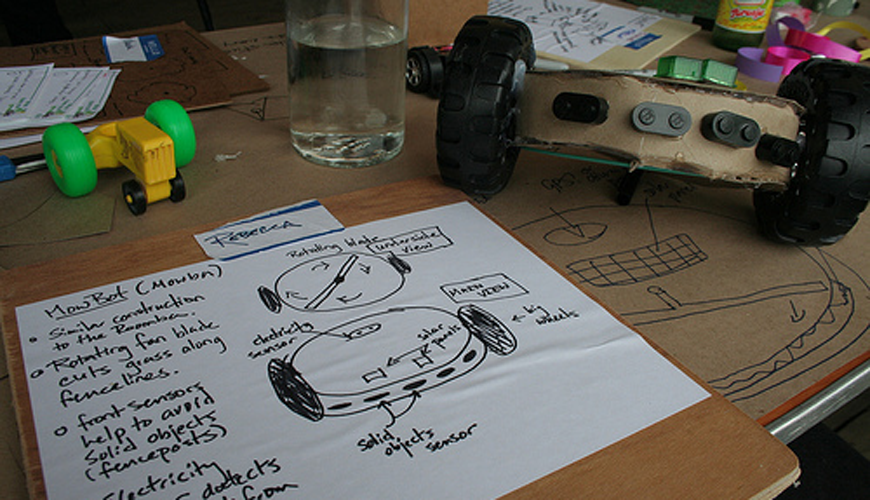 REBECCA
MowBot (Mowba)
• Similar construction
to the Roomba.
• Rotating fan blade
cuts grass along
fencelines.
• front sensors
help to avoid
solid objects
(fenceposts)
Electricity
detects
from
Rotating blade
underside
view
MAIN
VIEW
electricity
sensor
solar
panels
← big
wheels
solid
objects sensor